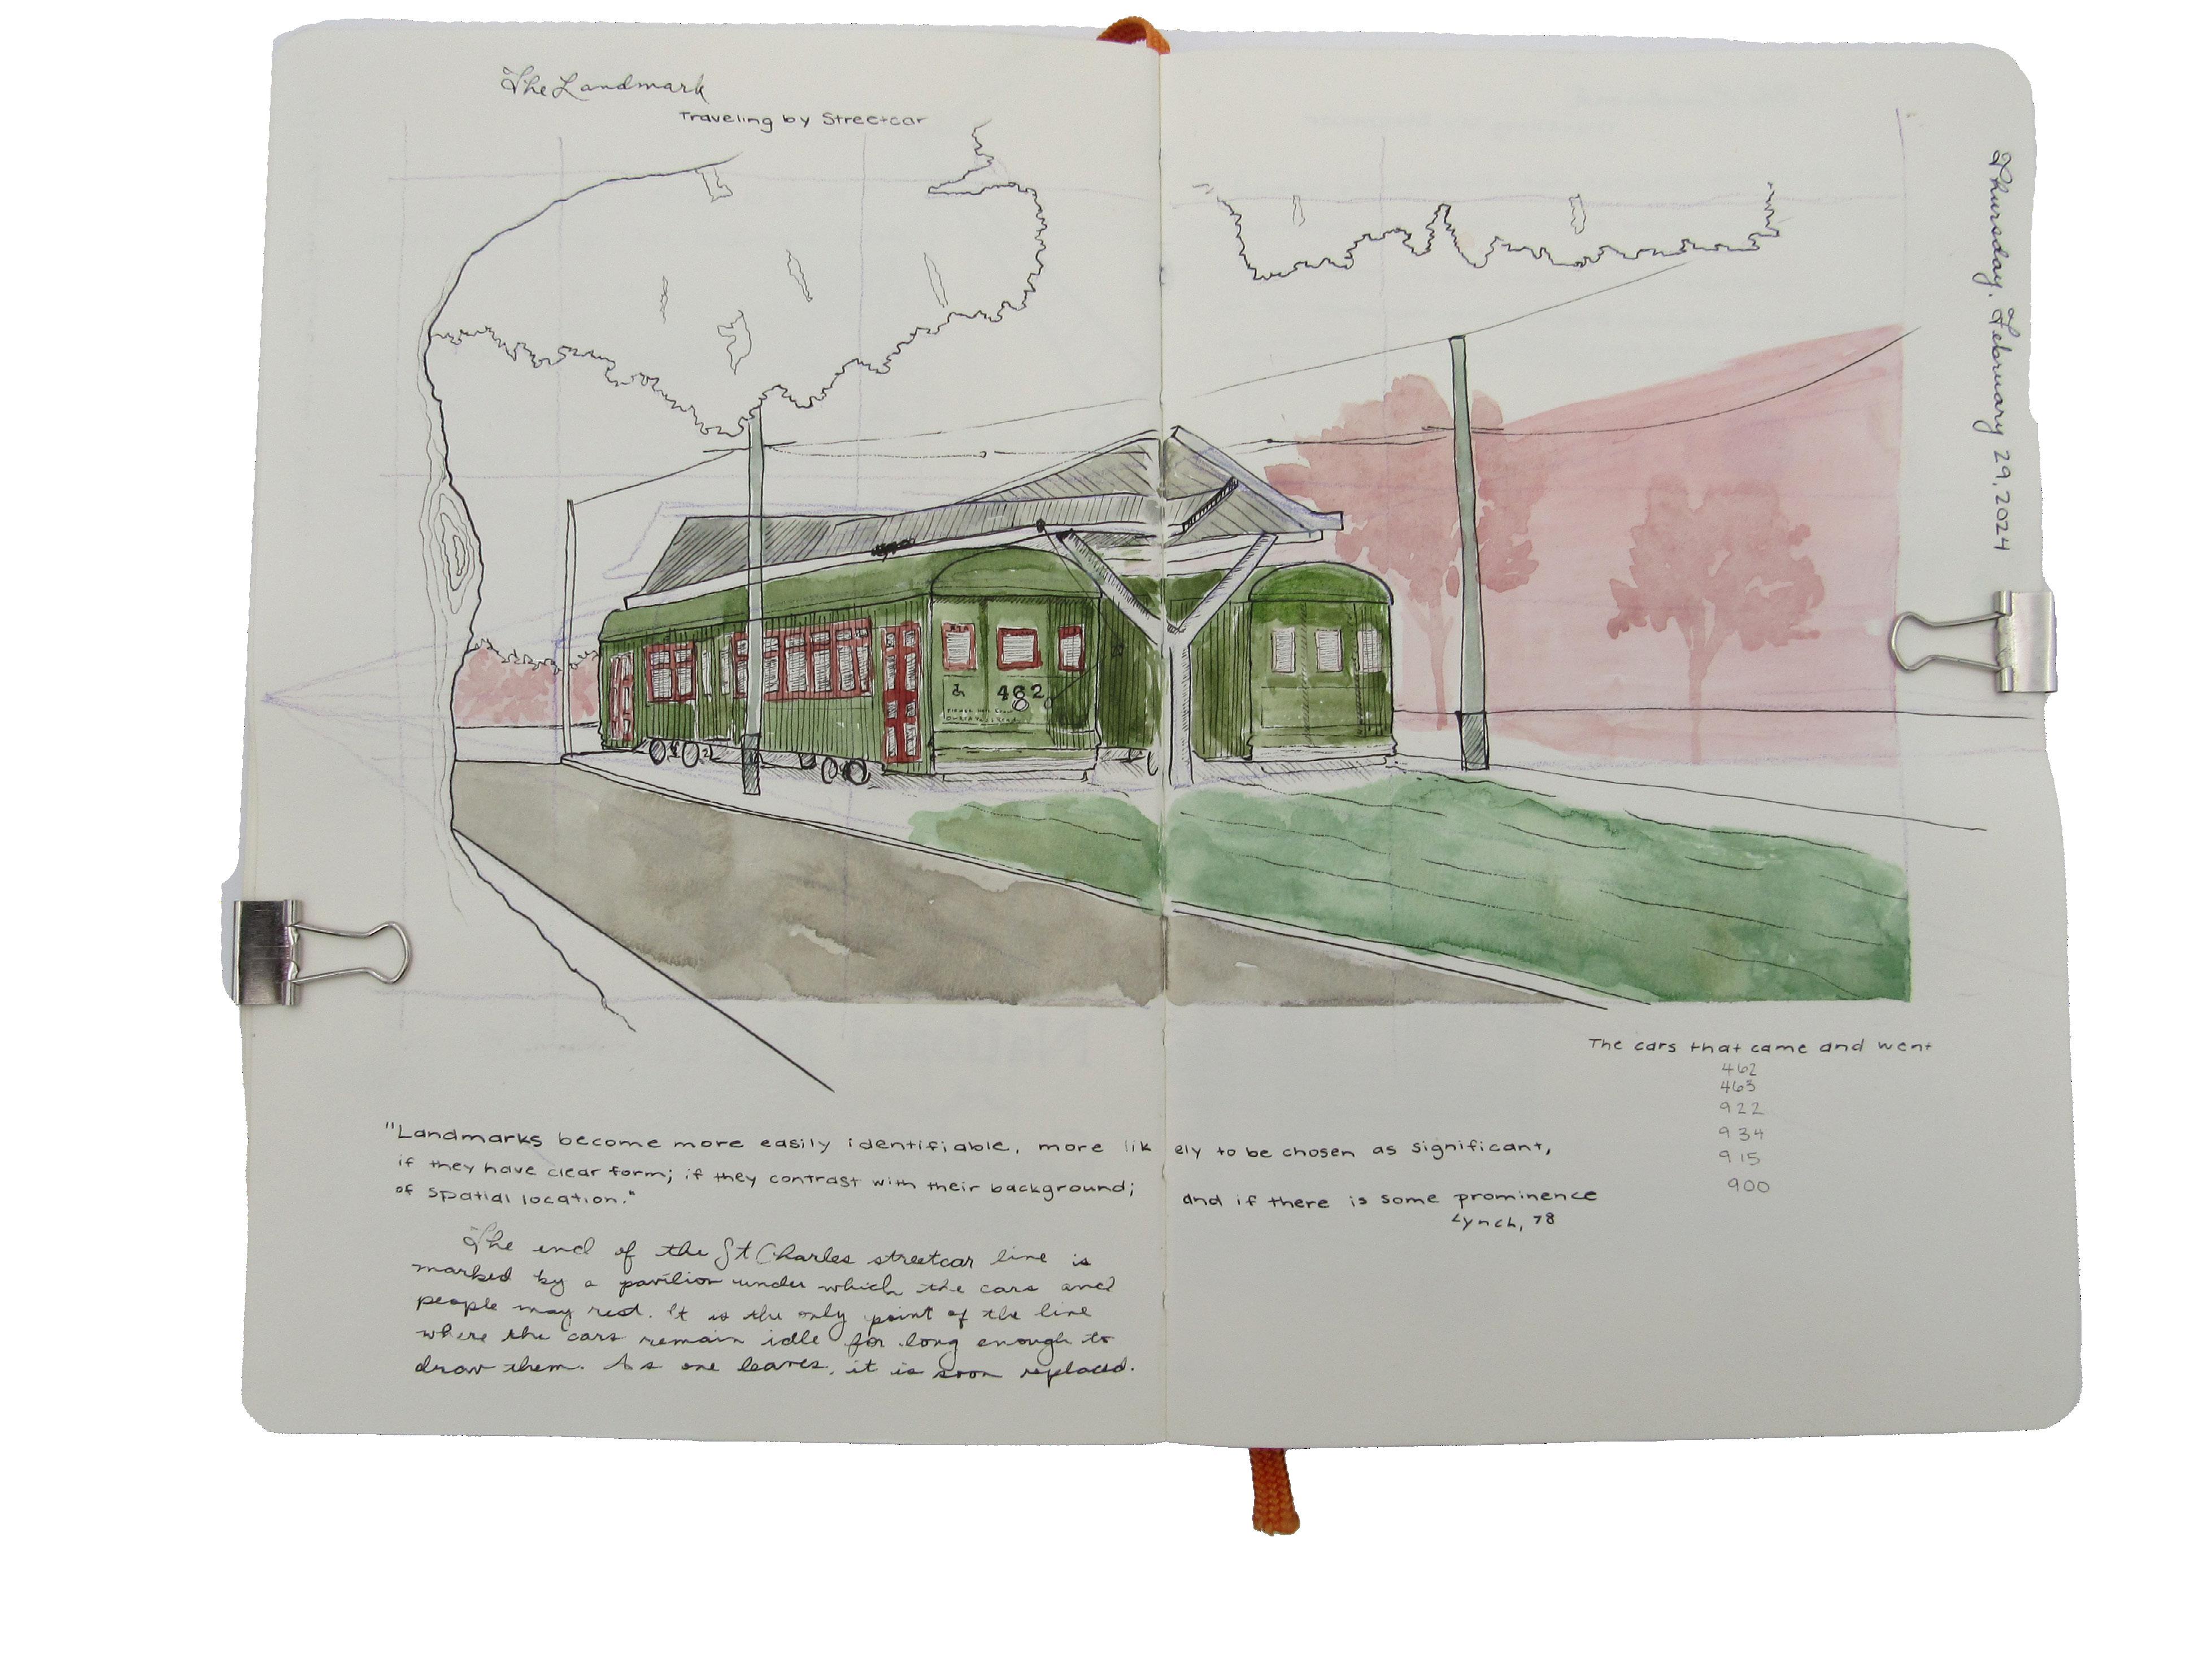 The Landmark
Traveling by Streetcar
Thursday, February 29, 2024
462
The cars that came and went
462
463
922
934
915
900
"Landmarks become more easily identifiable, more likely to be chosen as significant,
if they have clear form; if they contrast with their background; and if there is some prominence
of spatial location."
Lynch, 78
The end of the St Charles streetcar line is
marked by a pavilion under which the cars and
people may rest. It is the only point of the line
where the cars remain idle for long enough to
draw them. As one leaves, it is soon replaced.